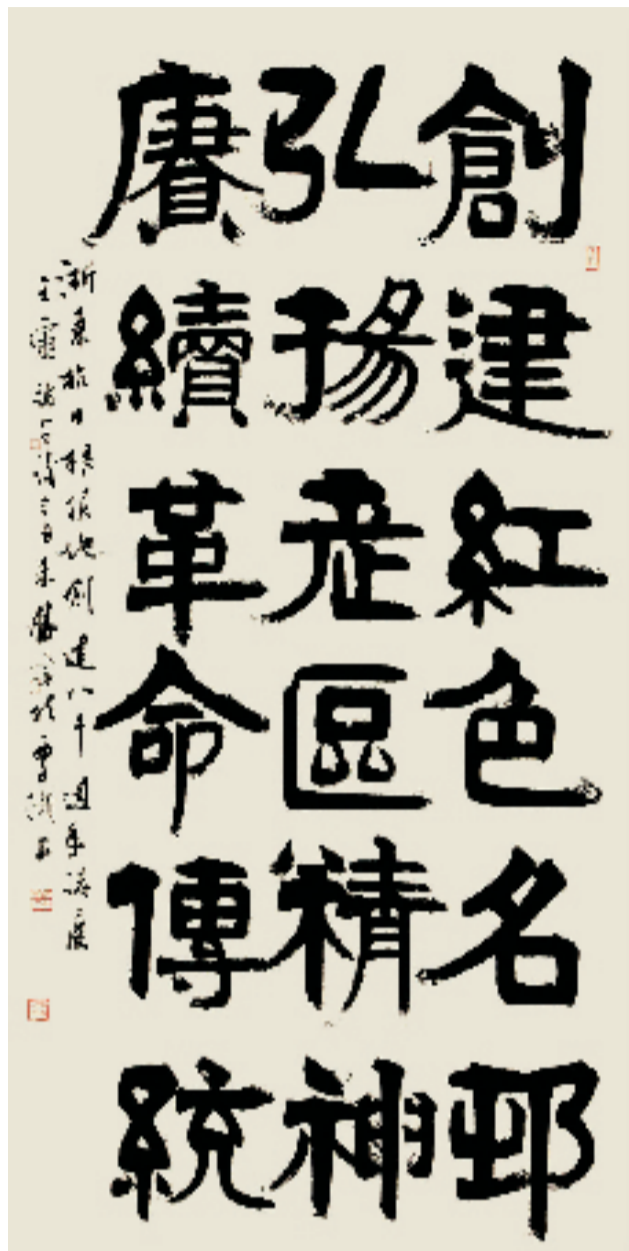 創建紅色名邨
弘揚老區精神
賡續革命傳統
浙東抗日根據地創建八十週年誌慶